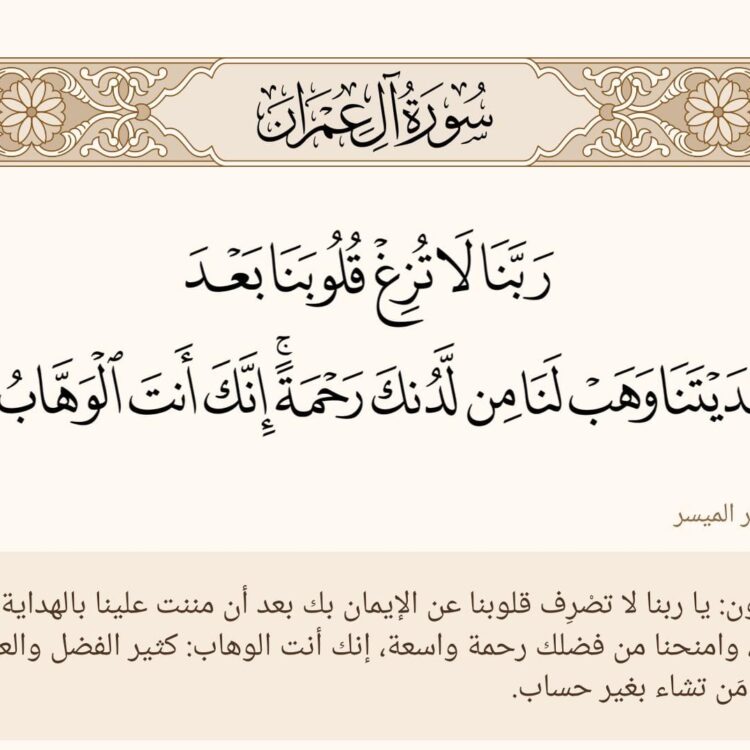 سُورَةُ آلِ عِمْرَانَ
رَبَّنَا لَا تُزِغْ قُلُوبَنَا بَعْدَ
وَهَبْ لَنَا مِن لَّدُنكَ رَحْمَةً ۚ إِنَّكَ أَنتَ ٱلْوَهَّابُ
الميسر
يا ربنا لا تصْرِف قلوبنا عن الإيمان بك بعد أن مننت علينا بالهداية
وامنحنا من فضلك رحمة واسعة، إنك أنت الوهاب: كثير الفضل
مَن تشاء بغير حساب.